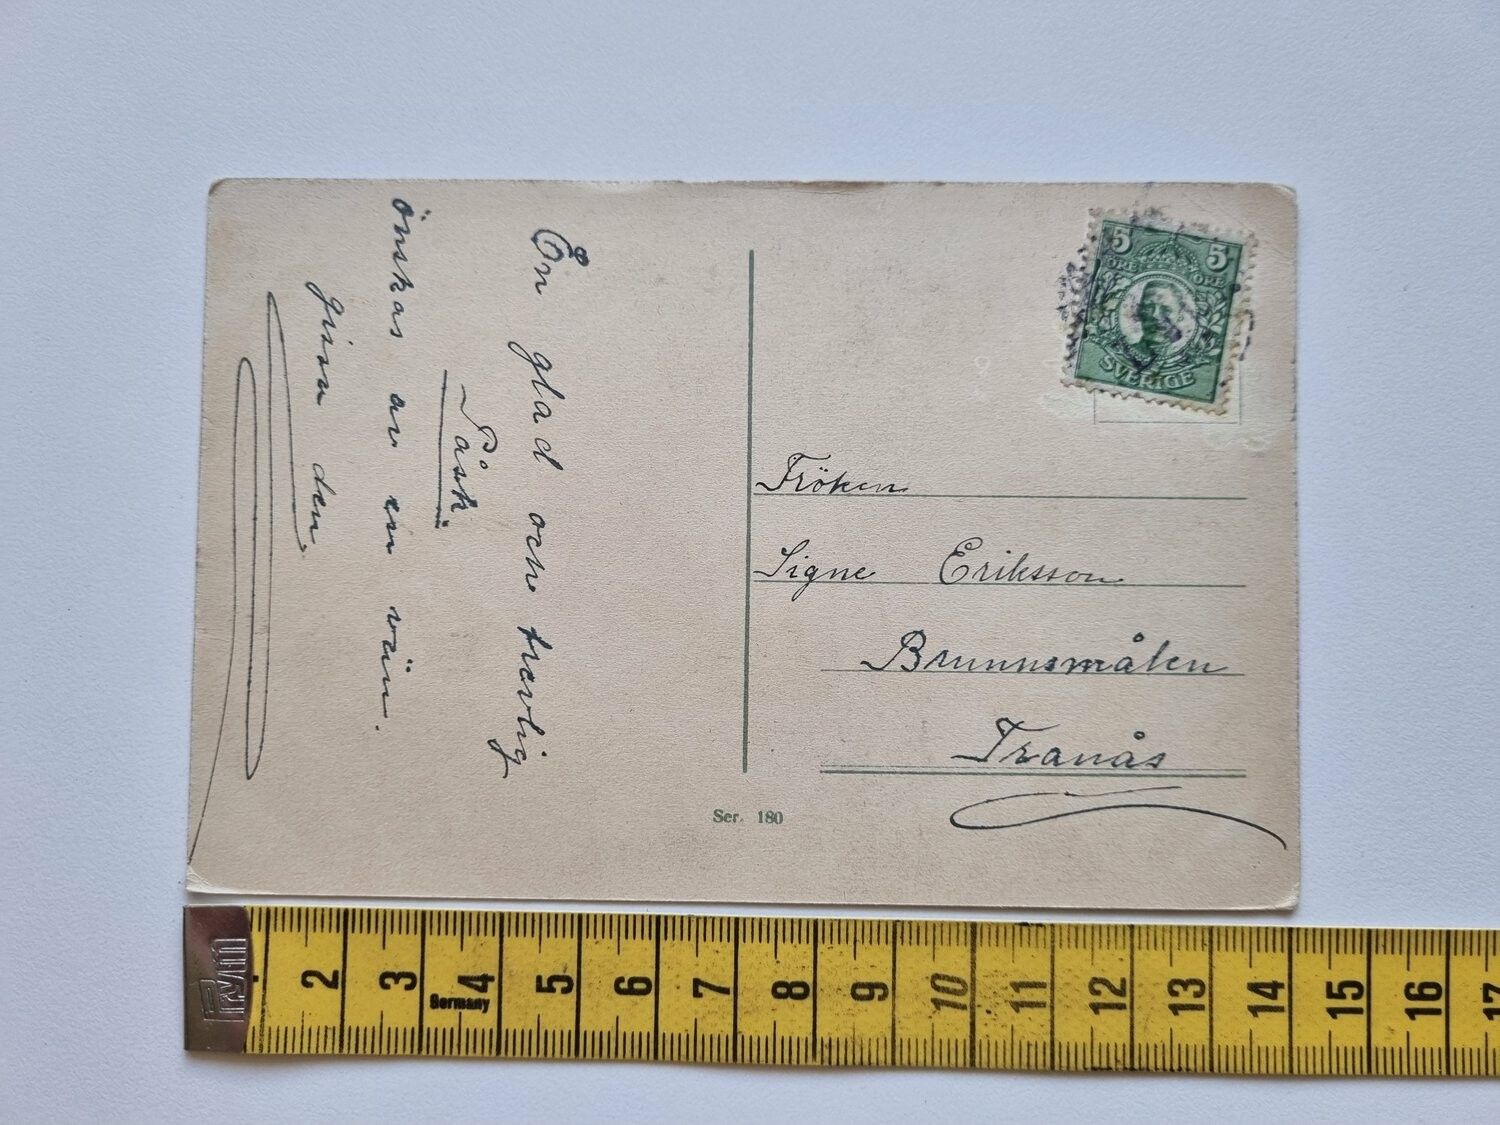 En glad och trevlig
Påsk
önskas av en vän.
gissa den.
5 5
ÖRE ÖRE
SVERIGE
Fröken
Signe Eriksson
Brunnsmålen
Tranås
Ser. 180
Prym
2 3 4 5 6 7 8 9 10 11 12 13 14 15 16 17
Germany